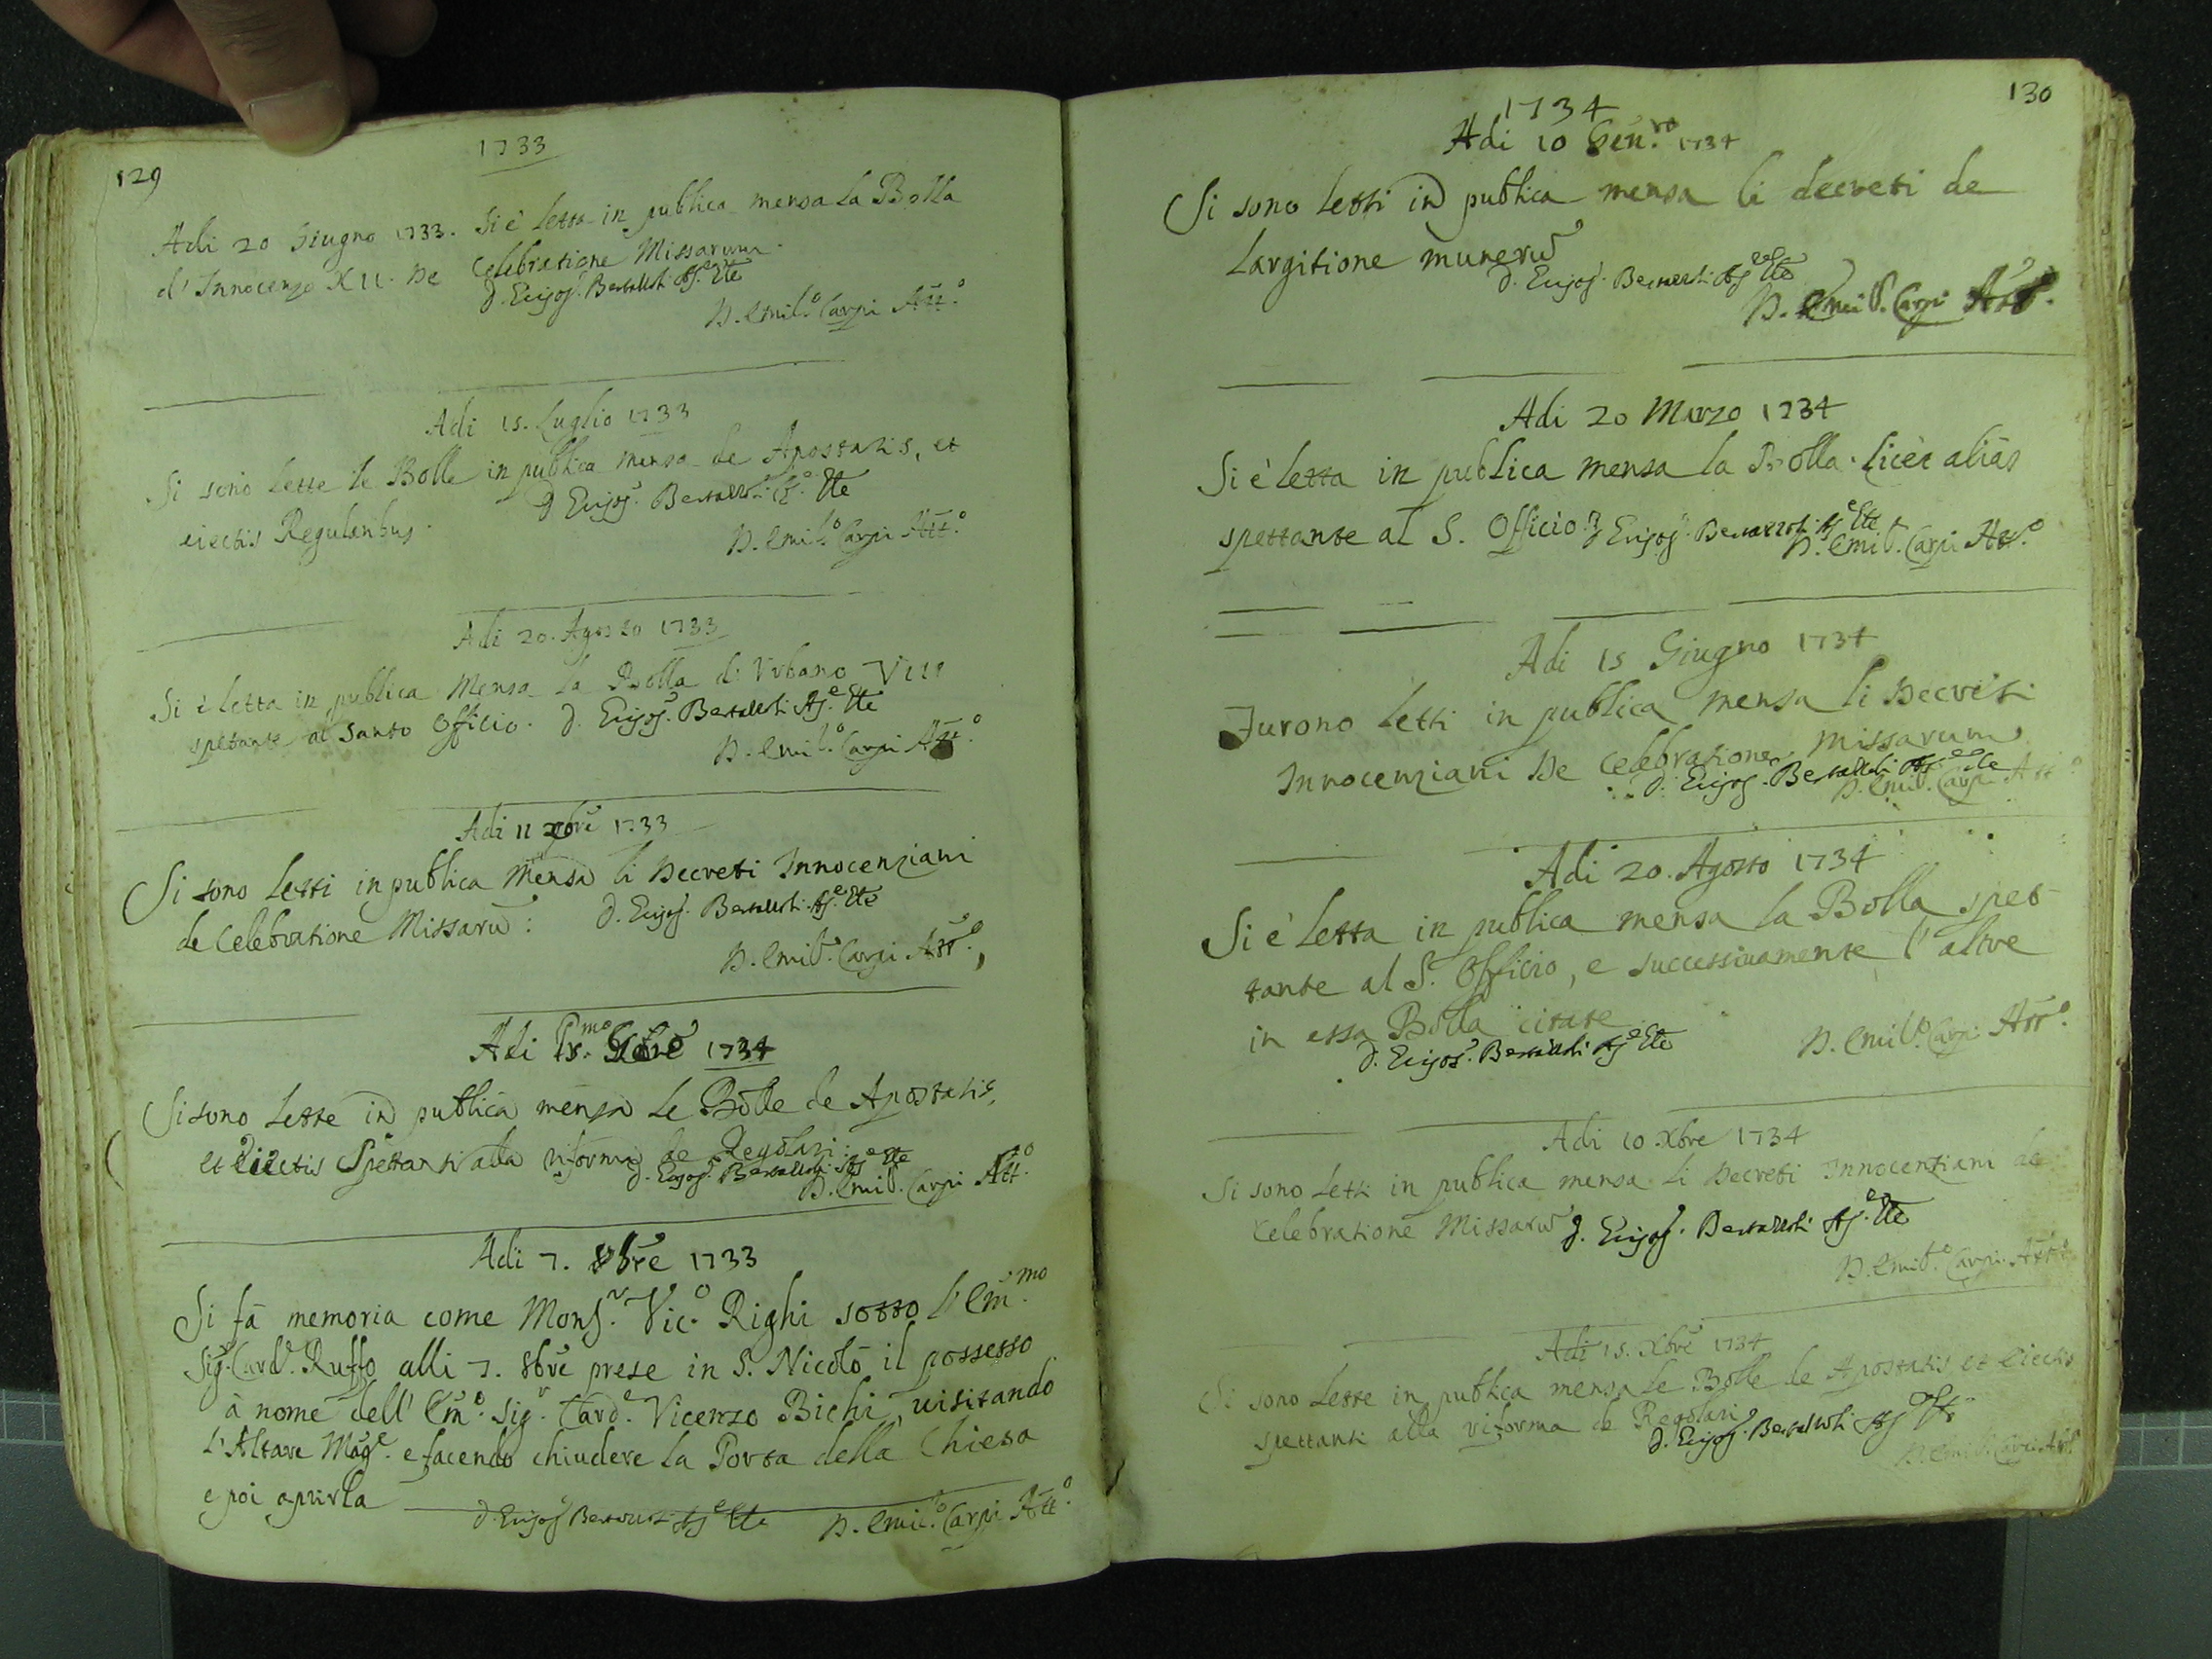 129
1733
Adi 20 Giugno 1733. Si è letta in publica mensa la Bolla
d'Innocenzo XII. De Celebratione Missarum.
D. Emil.o Carpi Att.o
Adi 15. Luglio 1733
Si sono lette le Bolle in publica mensa de Apostatis, et
eiectis Regularibus.
D. Emil.o Carpi Att.o
Adi 20. Agosto 1733
Si è letta in publica Mensa la Bolla di Vrbano VIII
spetante al Santo Officio.
D. Emil.o Carpi Att.o
Adi 11 Xbre 1733
Si sono letti in publica Mensa li Decreti Innocenziani
de Celebratione Missarū:
D. Emil.o Carpi Att.o
Adi Xbre 1734
Si sono lette in publica mensa le Bolle de Apostatis,
et Eiectis Spettanti alla riforma de Regolari:
D. Emil.o Carpi Att.o
Adi 7. 8bre 1733
Si fà memoria come Mons.r Vic.o Righi sotto l'Em.mo
Sig.r Card.e Ruffo alli 7. 8bre prese in S. Nicolò il possesso
à nome dell' Em.o Sig.r Card.e Vicenzo Bichi, uisitando
l'Altare Mag.e e facendo chiudere la Porta della Chiesa
e poi aprirla
D. Emil.o Carpi Att.o
130
1734
Adi 10 Gen.ro 1734
Si sono letti in publica mensa li decreti de
Largitione munerū
D. Emil.o Carpi Att.o
Adi 20 Marzo 1734
Si è letta in publica mensa la Bolla. licèt aliàs
spettante al S. Officio.
D. Emil.o Carpi Att.o
Adi 15 Giugno 1734
Furono letti in publica mensa li Decreti
Innocenziani De Celebratione Missarum
D. Emil.o Carpi Att.o
Adi 20. Agosto 1734
Si è letta in publica mensa la Bolla spet-
tante al S. Officio, e successiuamente l'altre
in essa Bolla citate
D. Emil.o Carpi Att.o
Adi 10 Xbre 1734
Si sono letti in publica mensa li Decreti Innocenziani de
Celebratione Missarū
D. Emil.o Carpi Att.o
Adi 15. Xbre 1734
Si sono lette in publica mensa le Bolle de Apostatis et eiectis
spettanti alla riforma de Regolari
D. Emil.o Carpi Att.o